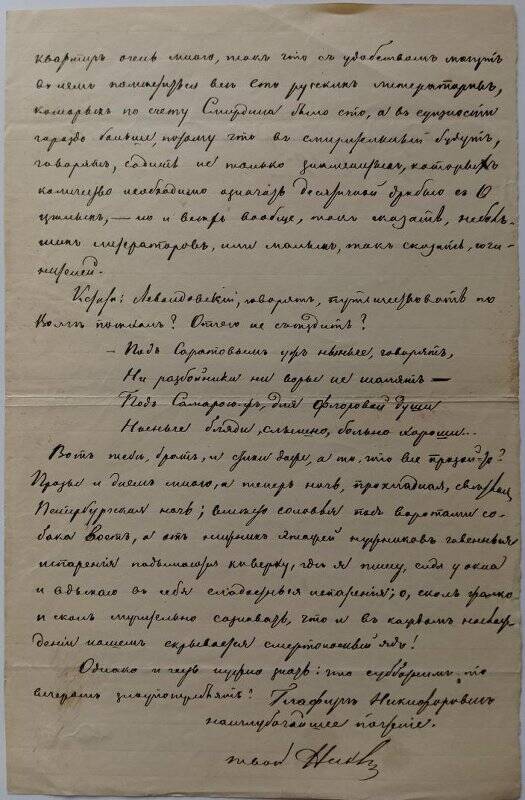 квартиръ очень много, такъ что съ удобствомъ могутъ
въ немъ помѣститься все сто русскихъ литераторовъ,
которыхъ по счету Смирдина было сто, а въ сущности
гораздо больше потому что въ смирительный будутъ,
говорятъ, садить не только знаменитыхъ, которыхъ
количество необходимо означать десятичной дробью съ 0
цѣлыхъ, — но и вѣтръ вообще, такъ сказать, неболь-
шихъ литераторовъ, или малыхъ, такъ сказать, сочи-
нителей.
Кстати: Левандовскій, говорятъ, путешествовать по
Волгѣ поѣхалъ? Отчего не съѣздить?
— Подъ Саратовымъ ужъ нынче, говорятъ,
Ни разбойники ни воры не шалятъ —
Подъ Самарою-съ, для души
Нонче бляди, слышно, больно хороши...
Вотъ тебѣ, братъ, и стихи даже, а то, что все проза-то?
Прозы и днемъ много, а теперь ночь, прохладная, свѣтлая
Петербургская ночь; вмѣсто соловья подъ воротами со-
бака воетъ, а отъ
испаренія подымаются кверху, гдѣ я пишу, сидя у окна
и вдыхаю въ себя сладостныя испаренія; о, сколь
и сколь мучительно сознавать, что и въ каждомъ наслаж-
деніи нашемъ скрывается смертоносный ядъ!
Однако и честь нужно знать: что субботнимъ-то
вечеромъ злоупотреблять? Никифоровичу
наиглубочайшее почтеніе.
твой